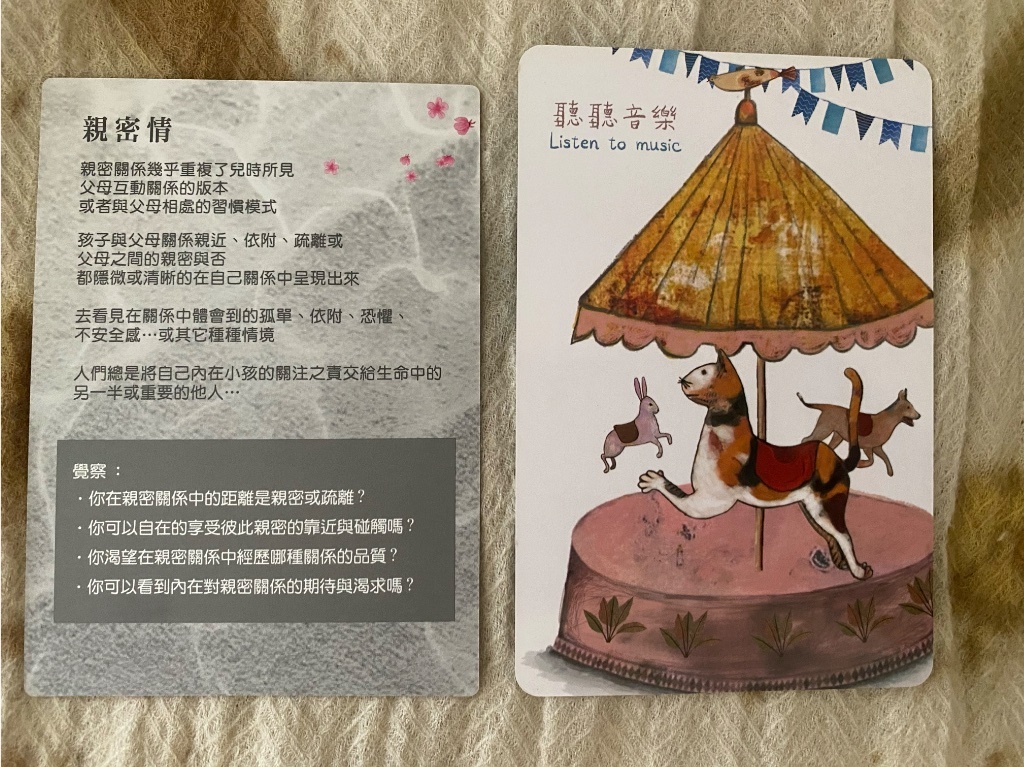 親密情
親密關係幾乎重複了兒時所見
父母互動關係的版本
或者與父母相處的習慣模式
孩子與父母關係親近、依附、疏離或
父母之間的親密與否
都隱微或清晰的在自己關係中呈現出來
去看見在關係中體會到的孤單、依附、恐懼、
不安全感…或其它種種情境
人們總是將自己內在小孩的關注之責交給生命中的
另一半或重要的他人…
覺察：
·你在親密關係中的距離是親密或疏離？
·你可以自在的享受彼此親密的靠近與碰觸嗎？
·你渴望在親密關係中經歷哪種關係的品質？
·你可以看到內在對親密關係的期待與渴求嗎？
聽聽音樂
Listen to music